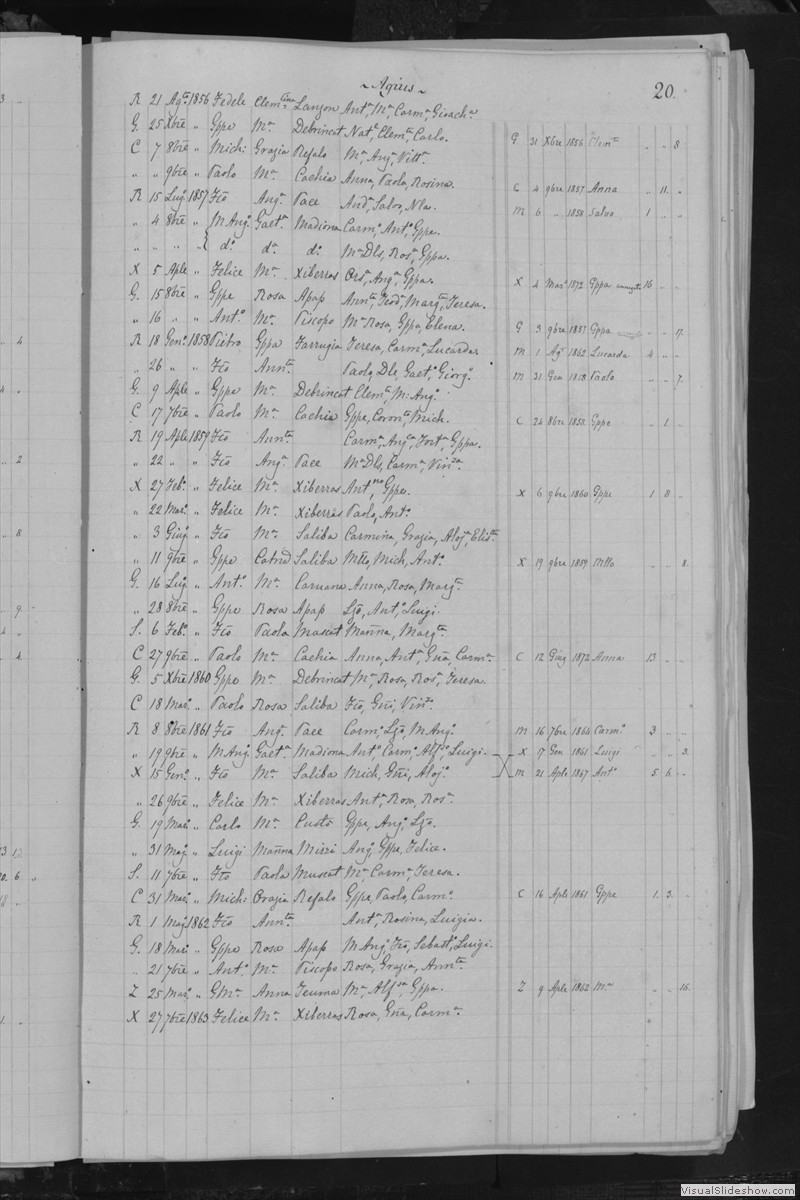 ~ Agius ~
20.
R 21 Agto 1856 Fedele Clemtina Lanzon Anta, Ma, Carma, Gioacha
G. 25 Xbre " Gppe Ma Debrincat Natle, Clemte, Carlo. G 31 Xbre 1856 Clemte " " 8
C 7 8bre " Mich: Grazia Refalo Ma, Anga, Vitta.
" " 9bre " Paolo Ma Cachia Anna, Paola, Rosina. C 4 9bre 1857 Anna " 11. "
R 15 Lugo 1857 Fco Anga. Pace Anda, Salva, Nla. M 6 " 1858 Salva 1 " "
" 4 8bre " M Ango. Gaeta Madiona Carmo, Anto, Gppe.
" " " " do. da. do. Ma Dls, Rosa, Gppa.
X 5 Aple " Felice Ma. Xiberras Orsa, Anga, Gppa. X 4 Marzo 1872 Gppa 16 " "
G. 15 8bre " Gppe Rosa Apap Annta, Teod, Margta, Teresa.
" 16 " " Anto. Ma. Piscopo Ma Rosa, Gppa, Elena. G 3 9bre 1857 Gppa " " 17.
R 18 Geno. 1858 Pietro Gppa Farrugia Teresa, Carma, Lucarda M 1 Ago 1862 Lucarda 4 " "
" 26 " " Fco Annta. Paolo, Dls, Gaeto, Giorgo. M 31 Gen 1858 Paolo " " 7.
G. 9 Aple " Gppe Ma. Debrincat Clemte, M: Ango.
C 17 7bre " Paolo Ma. Cachia Gppe, Coronta, Mich. C 24 8bre 1858 Gppe " 1. "
R 19 Aple 1859 Fco Annta. Carma, Angca, Forta, Gppa.
" 22 " " Fco Anga. Pace Ma Dls, Carma, Vinza.
X 27 Febo. " Felice Ma. Xiberras Antno, Gppe. X 6 9bre 1860 Gppe 1 8 "
" 22 Maro. " Felice Ma. Xiberras Paolo, Anto.
" 3 Giugo " Fco Ma. Saliba Carmina, Grazia, Aloja, Elista.
" 11 9bre " Gppe Catnd Saliba Mtto, Mich, Anto. X 19 9bre 1859 Mtto " " 8.
G. 16 Lugo " Anto. Ma. Caruana Anna, Rosa, Margta.
" 28 8bre " Gppe Rosa Apap Lzo, Anto, Luigi.
S. 6 Febo. " Fco Paola Muscat Manna, Margta.
C 27 9bre " Paolo Ma. Cachia Anna, Anta, Gna, Carma. C 12 Giug 1872 Anna 13 " "
G. 5 Xbre 1860 Gppe Ma. Debrincat Ma, Rosa, Rosa, Teresa.
C 18 Maro. " Paolo Rosa Saliba Fco, Gni, Vinzo.
R 8 8bre 1861 Fco Anga. Pace Carmo, Lzo, M Ango. M 16 7bre 1864 Carmo. 3 " "
" 19 9bre " M Ango. Gaeta Madiona Anto, Carmo, Alfso, Luigi. X 17 Gen 1861 Luigi " " 3.
X 15 Geno. " Fco Ma. Saliba Mich, Gni, Alojo. M 21 Aple 1867 Anto. 5 6 "
" 26 9bre " Felice Ma. Xiberras Anta, Rosa, Rosa.
G. 19 Maro. " Carlo Ma. Custo Gppe, Ango, Lzo.
" 31 Mago " Luigi Manna Mizzi Ango, Gppe, Felice.
S. 11 7bre " Fco Paola Muscat Ma, Carma, Teresa.
C 31 Maro. " Mich: Grazia Refalo Gppe, Paolo, Carmo. C 16 Aple 1861 Gppe 1. 3. "
R 1 Mago 1862 Fco Annta. Anta, Rosina, Luigia.
G. 18 Maro. " Gppe Rosa Apap M Ango, Fco, Sebasto, Luigi.
" 21 7bre " Anto. Ma. Piscopo Rosa, Grazia, Annta.
Z 25 Maro. " GMa. Anna Teuma Ma, Alfsa, Gppa. Z 9 Aple 1862 Ma " " 16.
X 27 7bre 1863 Felice Ma. Xiberras Rosa, Gna, Carma.
VisualSlideshow.com